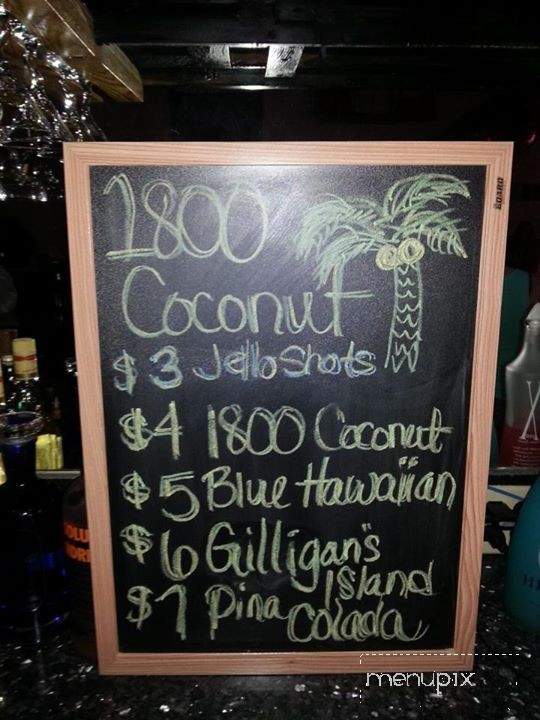 1800
Coconut
$3 Jello Shots
$4 1800 Coconut
$5 Blue Hawaiian
$6 Gilligan's
Island
$7 Pina
Colada
BOARD
menupix